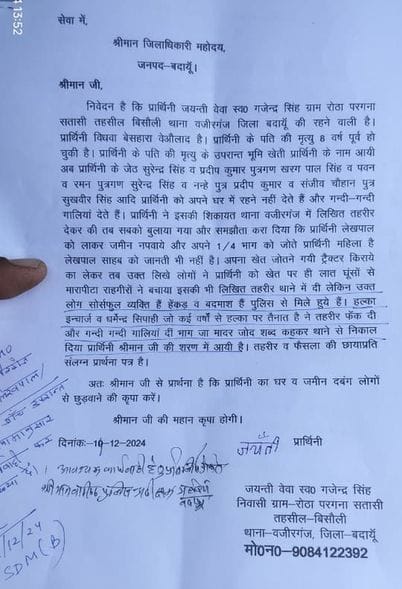 सेवा में,
श्रीमान जिलाधिकारी महोदय,
जनपद-बदायूँ।
श्रीमान जी,
निवेदन है कि प्रार्थिनी जयन्ती वेवा स्व0 गजेन्द्र सिंह ग्राम रोठा परगना
सतासी तहसील बिसौली थाना वजीरगंज जिला बदायूँ की रहने वाली है।
प्रार्थिनी विधवा बेसहारा वेऔलाद है। प्रार्थिनी के पति की मृत्यु 8 वर्ष पूर्व हो
चुकी है। प्रार्थिनी के पति की मृत्यु के उपरान्त भूमि खेती प्रार्थिनी के नाम आयी
अब प्रार्थिनी के जेठ सुरेन्द्र सिंह व प्रदीप कुमार पुत्रगण खरग पाल सिंह व पवन
व रमन पुत्रगण सुरेन्द्र सिंह व नन्हे पुत्र प्रदीप कुमार व संजीव चौहान पुत्र
सुखवीर सिंह आदि प्रार्थिनी को अपने घर में रहने नहीं देते हैं और गन्दी-गन्दी
गालियां देते हैं। प्रार्थिनी ने इसकी शिकायत थाना वजीरगंज में लिखित तहरीर
देकर की तब सबको बुलाया गया और समझौता करा दिया कि प्रार्थिनी लेखपाल
को लाकर जमीन नपवाये और अपने 1/4 भाग को जोते प्रार्थिनी महिला है
लेखपाल साहब को जानती भी नहीं है। अपना खेत जोतने गयी ट्रैक्टर किराये
का लेकर तब उक्त लिखे लोगों ने प्रार्थिनी को खेत पर ही लात घूंसों से
मारापीटा राहगीरों ने बचाया इसकी भी लिखित तहरीर थाने में दी लेकिन उक्त
लोग सोर्सफुल व्यक्ति हैं हेंकड़ व बदमाश हैं पुलिस से मिले हुये हैं। हल्का
इन्चार्ज व धर्मेन्द्र सिपाही जो कई वर्षो से हल्का पर तैनात है ने तहरीर फेंक दी
और गन्दी गन्दी गालियां दी भाग जा मादर जोद शब्द कहकर थाने से निकाल
दिया प्रार्थिनी श्रीमान जी की शरण में आयी है। तहरीर व फैसला की छायाप्रति
संलग्न प्रार्थना पत्र है।
अतः श्रीमान जी से प्रार्थना है कि प्रार्थिनी का घर व जमीन दबंग लोगों
से छुड़वाने की कृपा करें।
श्रीमान जी की महान कृपा होगी।
दिनांक:-19-12-2024
जयंती
प्रार्थिनी
जयंती वेवा स्व0 गजेन्द्र सिंह
निवासी ग्राम-रोठा परगना सतासी
तहसील-बिसौली
थाना-वजीरगंज, जिला-बदायूँ
मो0न0-9084122392
/12/24
SDM(B)